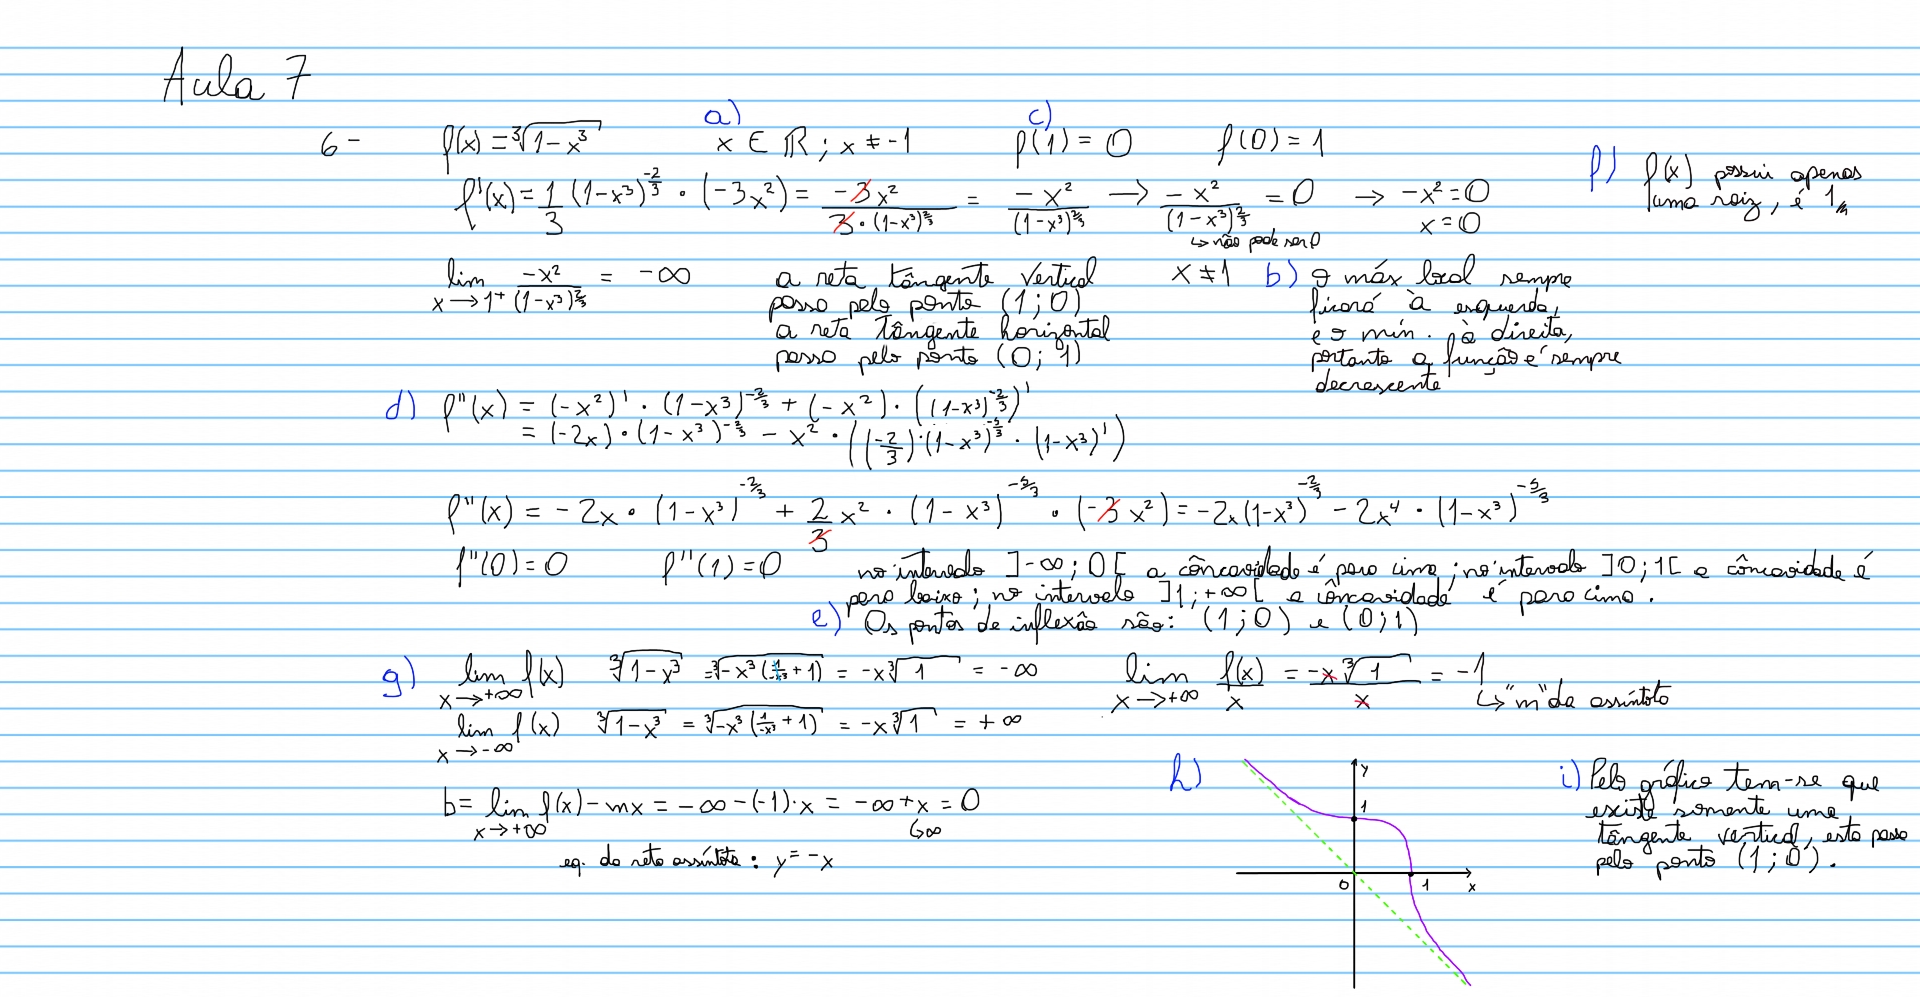 Aula 7
a) c)
6 - f(x) = ∛(1-x³) x ∈ ℝ ; x ≠ -1 f(1) = 0 f(0) = 1
f) f(x) possui apenas
uma raiz, é 1,,
f'(x) = 1/3 (1-x³)^(-2/3) · (-3x²) = -3x²/(3·(1-x³)^(2/3)) = -x²/(1-x³)^(2/3) → -x²/(1-x³)^(2/3) = 0 → -x² = 0
↳ não pode ser 0 x = 0
lim x→1⁺ -x²/(1-x³)^(2/3) = -∞
a reta tângente vertical
passa pelo ponto (1;0)
a reta tângente horizontal
passa pelo ponto (0;1)
x ≠ 1
b) o máx local sempre
ficará à esquerda,
e o mín. à direita,
portanto a função é sempre
decrescente
d) f''(x) = (-x²)' · (1-x³)^(-2/3) + (-x²) · ((1-x³)^(-2/3))'
= (-2x) · (1-x³)^(-2/3) - x² · ((-2/3) · (1-x³)^(-5/3) · (1-x³)')
f''(x) = -2x · (1-x³)^(-2/3) + 2/3 x² · (1-x³)^(-5/3) · (-3x²) = -2x(1-x³)^(-2/3) - 2x⁴ · (1-x³)^(-5/3)
f''(0) = 0 f''(1) = 0 no intervalo ]-∞;0[ a côncavidade é para cima ; no intervalo ]0;1[ a côncavidade é
para baixo ; no intervalo ]1;+∞[ a côncavidade é para cima.
e) Os pontos de inflexão são: (1;0) e (0;1)
g) lim x→+∞ f(x) ∛(1-x³) = ∛(-x³(1/-x³ + 1)) = -x∛1 = -∞ lim x→+∞ f(x)/x = -x∛1/x = -1
↳ "m" da assíntota
lim x→-∞ f(x) ∛(1-x³) = ∛(-x³(1/-x³ + 1)) = -x∛1 = +∞
b = lim x→+∞ f(x) - mx = -∞ - (-1)·x = -∞ + x = 0
↳∞
eq. da reta assíntota : y = -x
h) y
1
0 1 x
i) Pelo gráfico tem-se que
existe somente uma
tângente vertical, esta passa
pelo ponto (1;0).